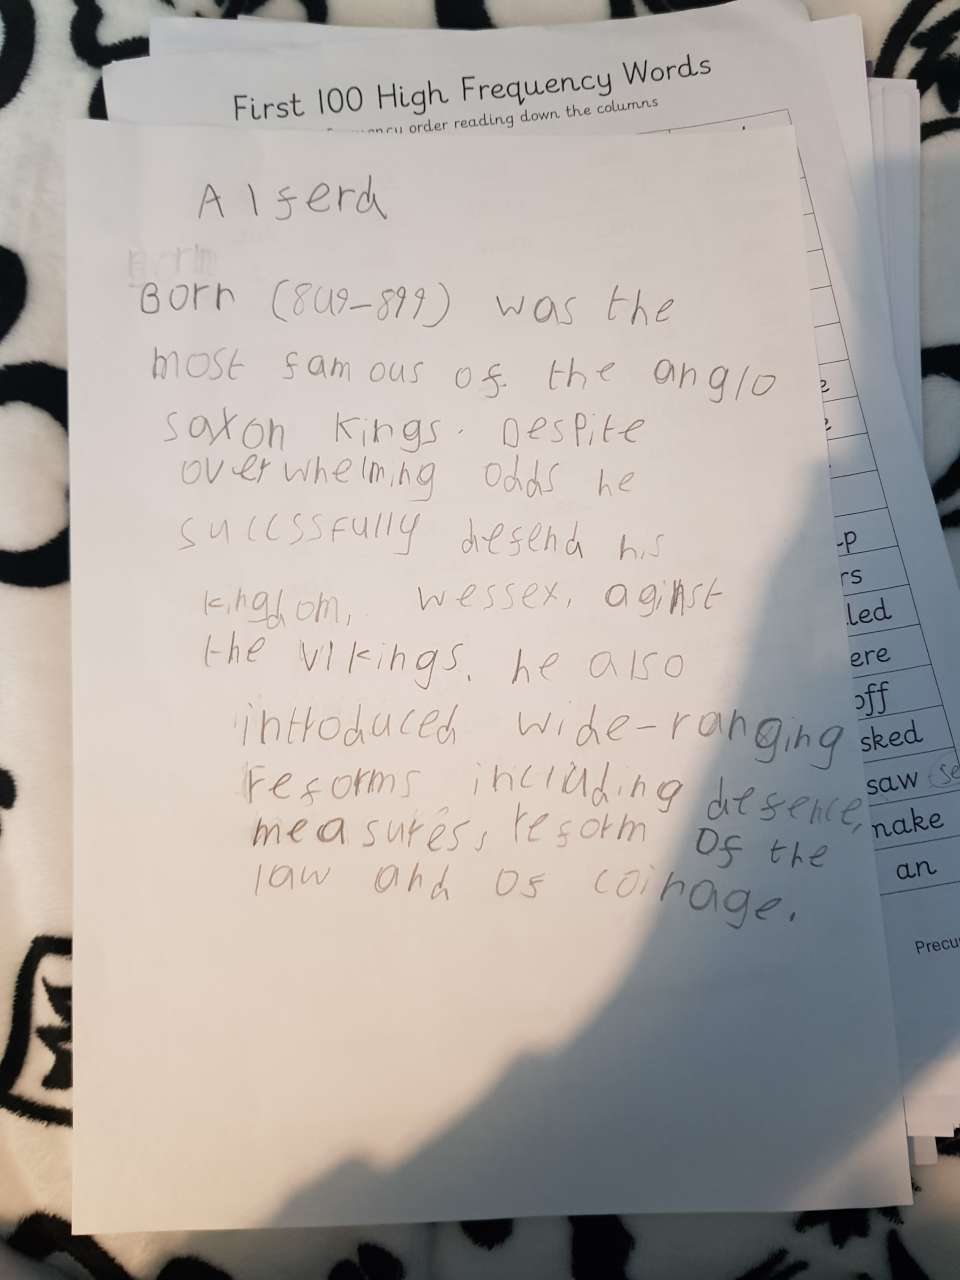 First 100 High Frequency Words
order reading down the columns
Alferd
Born (849-899) was the
most famous of the anglo
saxon kings. Despite
overwhelming odds he
succssfully defend his
kingdom, wessex, aginst
the vikings. he also
introduced wide-ranging
reforms including defence,
measures, reform of the
law and of coinage.
led
ere
off
sked
saw
make
an
Precu